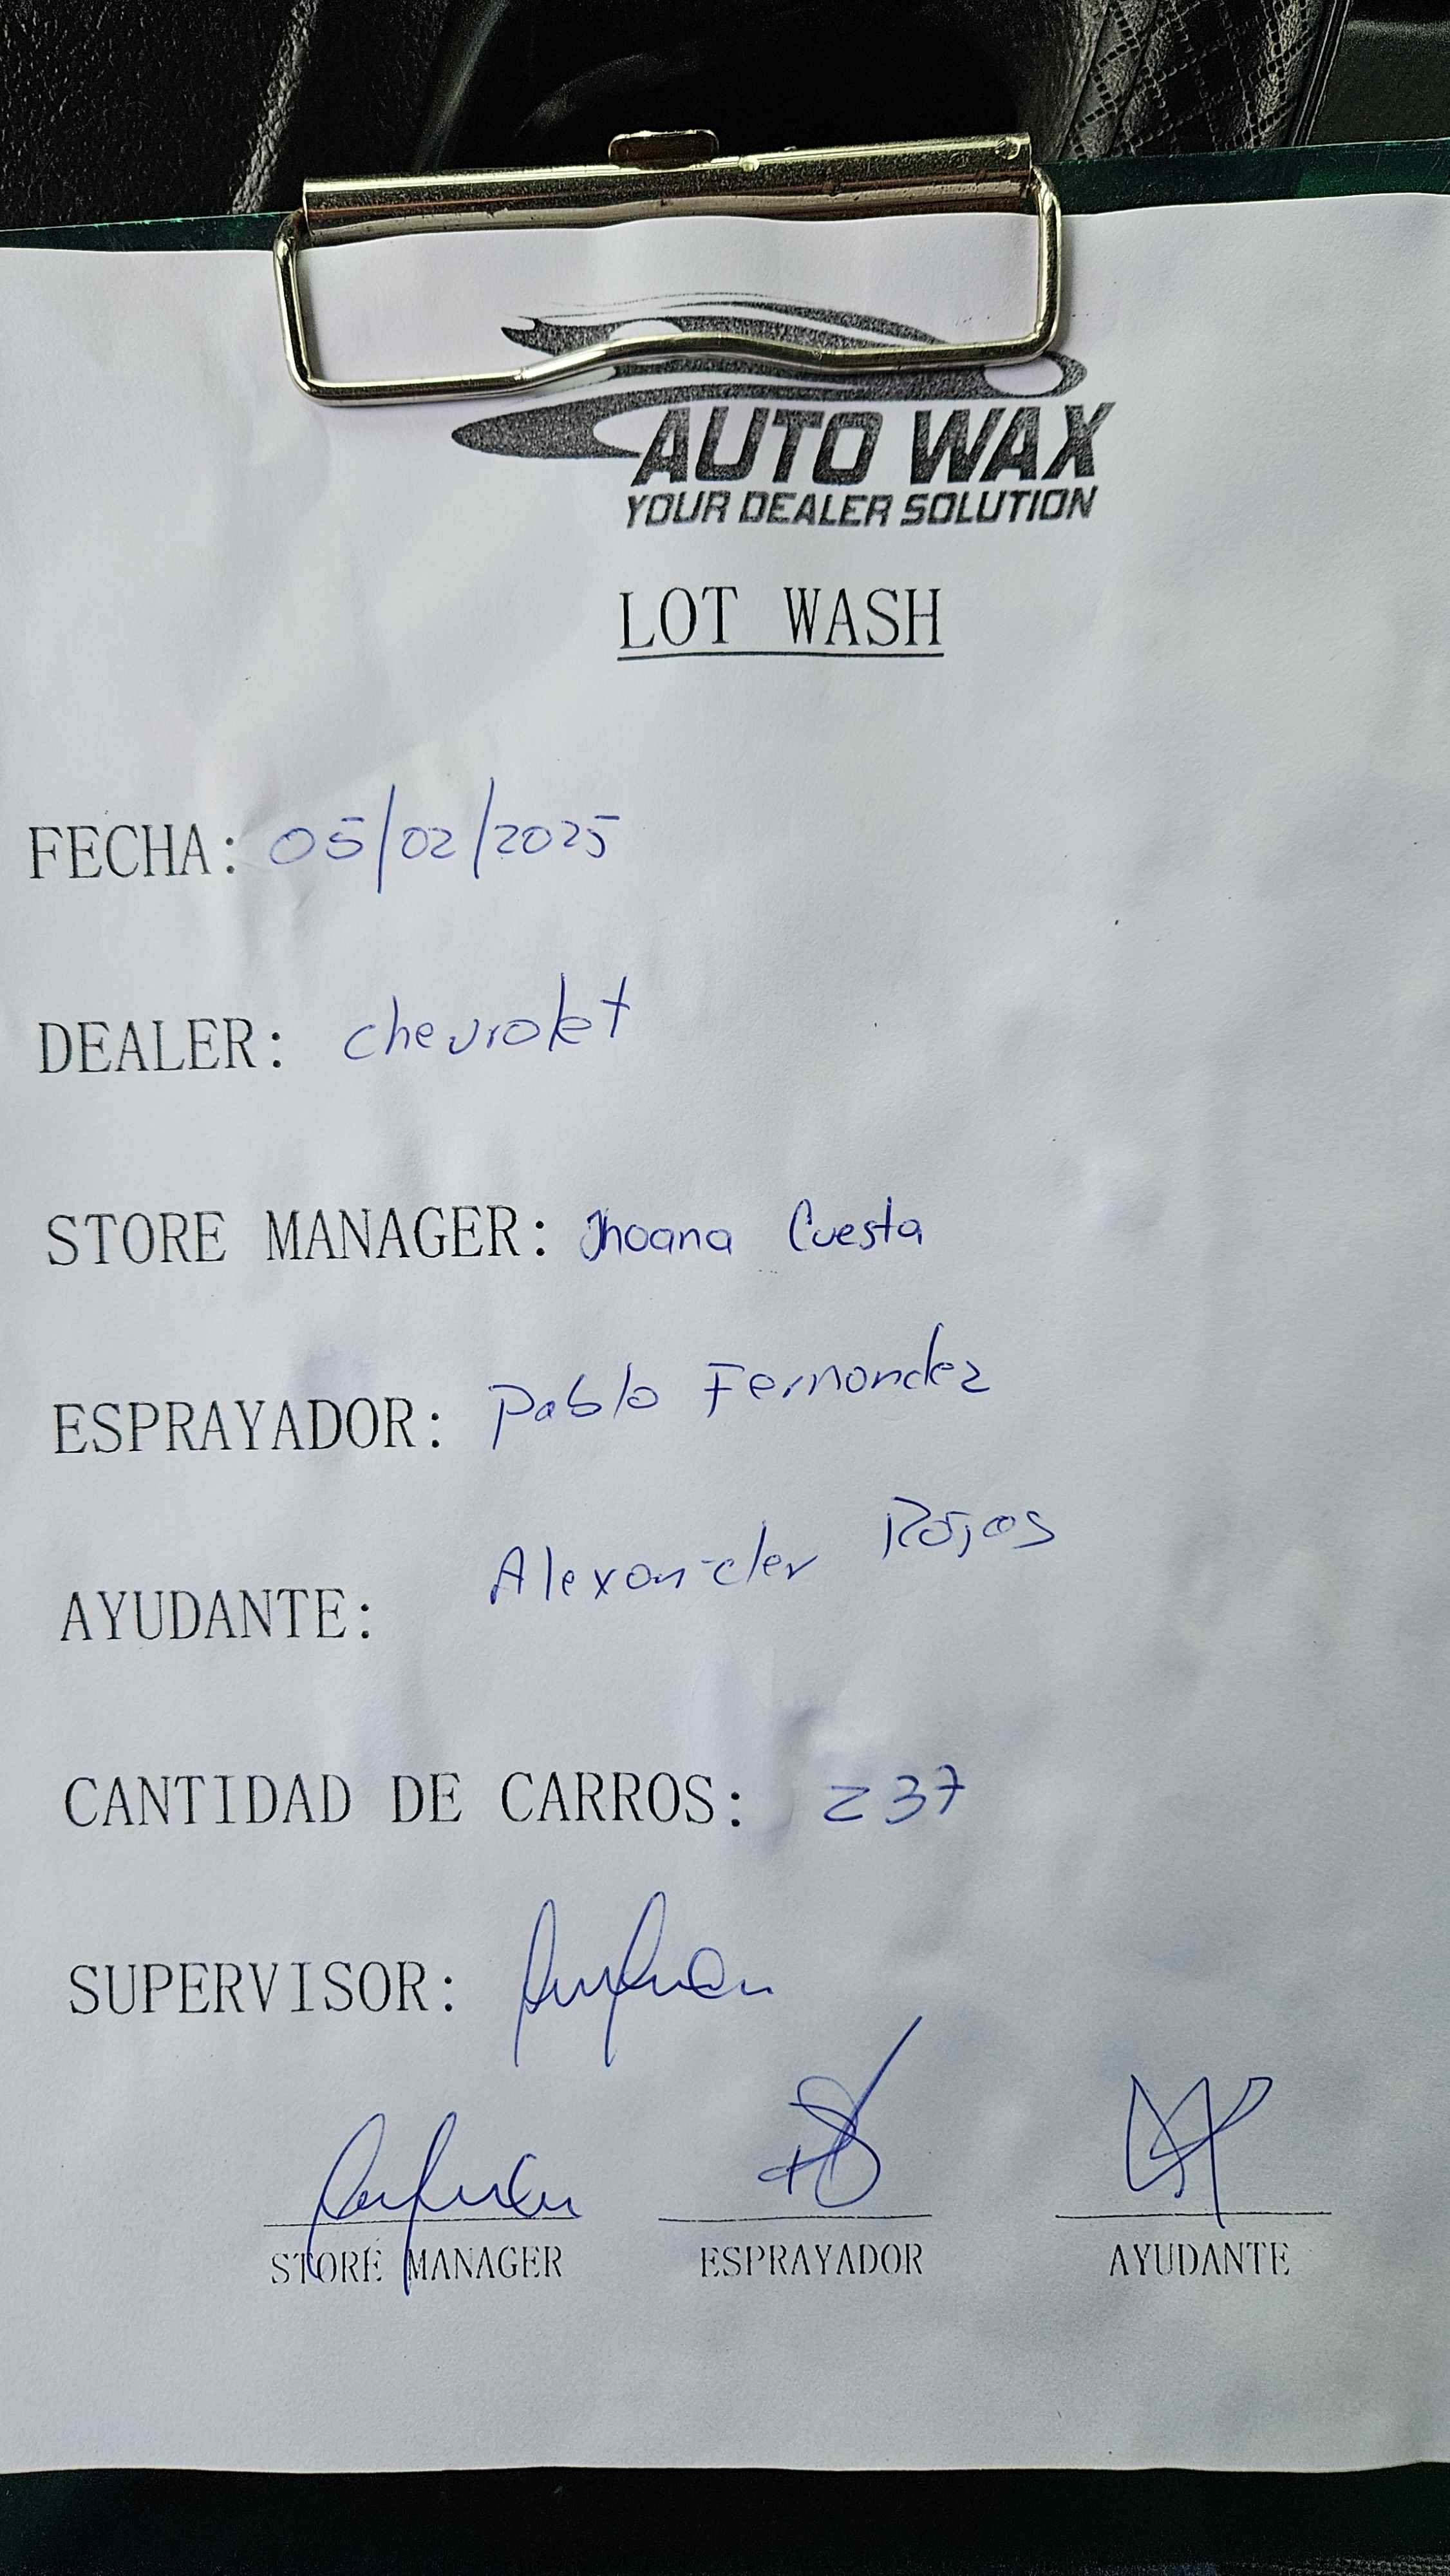 AUTO WAX
YOUR DEALER SOLUTION
LOT WASH
FECHA: 05/02/2025
DEALER: chevrolet
STORE MANAGER: Jhoana Cuesta
ESPRAYADOR: Pablo Fernandez
AYUDANTE: Alexander Rojas
CANTIDAD DE CARROS: 237
SUPERVISOR:
STORE MANAGER ESPRAYADOR AYUDANTE